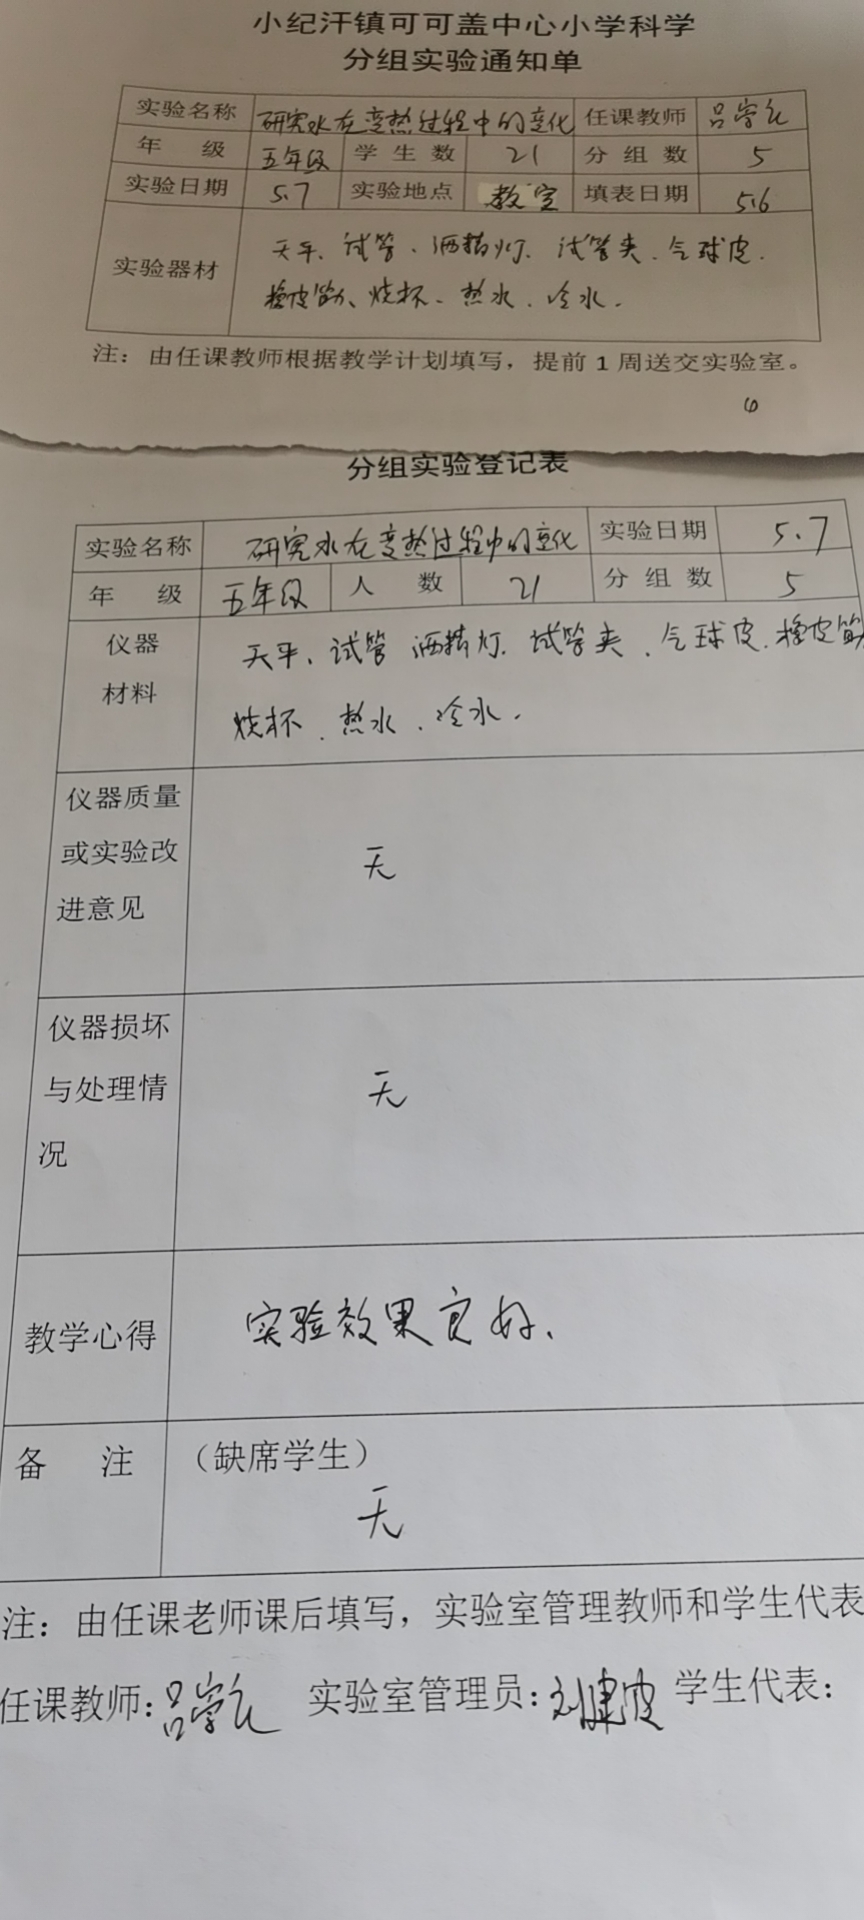 小纪汗镇可可盖中心小学科学
分组实验通知单
实验名称 研究水在变热过程中的变化 任课教师 吕学
年 级 五年级 学生数 21 分组数 5
实验日期 5.7 实验地点 教室 填表日期 5.6
实验器材 天平、试管、酒精灯、试管夹、气球皮、
橡皮筋、烧杯、热水、冷水。
注：由任课教师根据教学计划填写，提前1周送交实验室。
分组实验登记表
实验名称 研究水在变热过程中的变化 实验日期 5.7
年 级 五年级 人 数 21 分组数 5
仪器
材料
天平、试管 酒精灯、试管夹、气球皮、橡皮筋
烧杯、热水、冷水。
仪器质量
或实验改
进意见
无
仪器损坏
与处理情
况
无
教学心得 实验效果良好、
备 注 （缺席学生）
无
注：由任课老师课后填写，实验室管理教师和学生代表
任课教师：吕学 实验室管理员：刘建 学生代表：